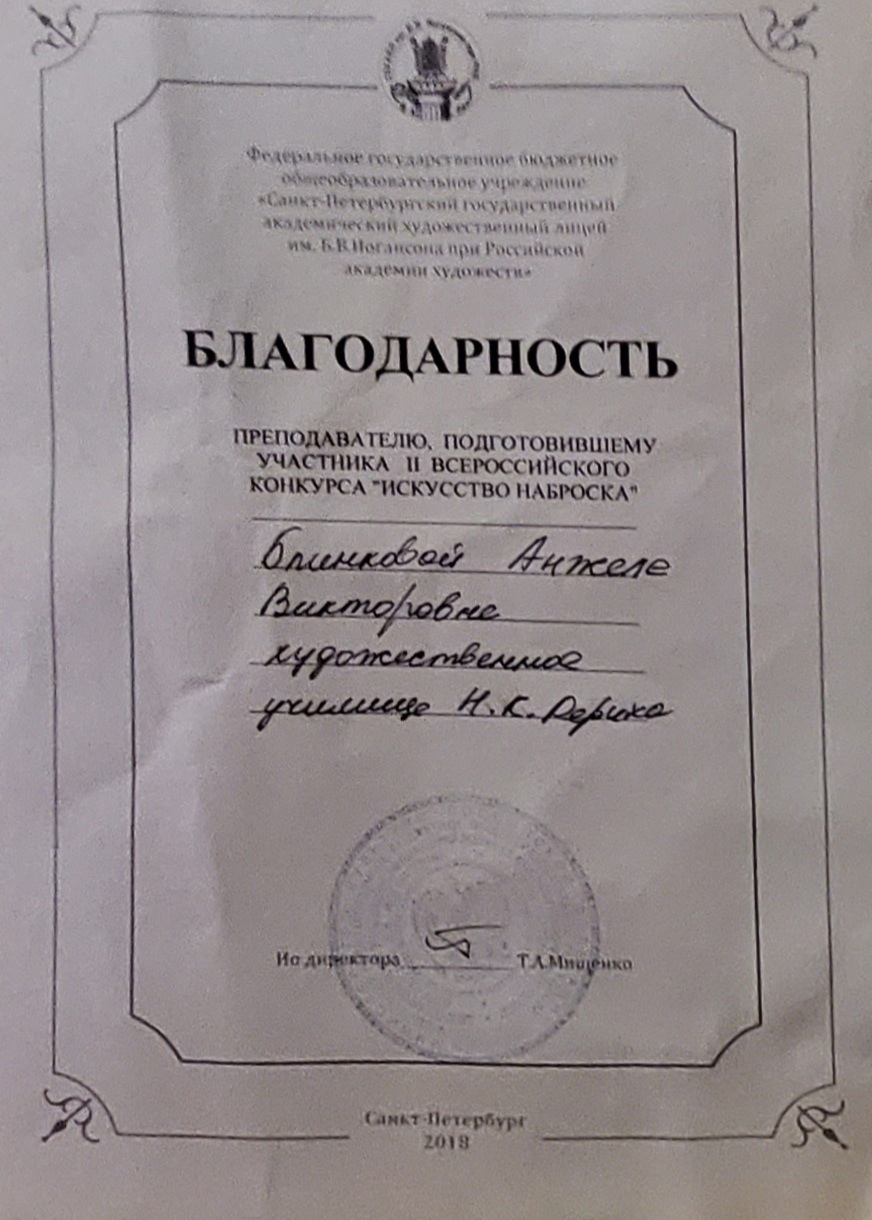 Федеральное государственное бюджетное
общеобразовательное учреждение
«Санкт-Петербургский государственный
академический художественный лицей
им. Б.В.Иогансона при Российской
академии художеств»
БЛАГОДАРНОСТЬ
ПРЕПОДАВАТЕЛЮ, ПОДГОТОВИВШЕМУ
УЧАСТНИКА II ВСЕРОССИЙСКОГО
КОНКУРСА "ИСКУССТВО НАБРОСКА"
Блинковой Анжеле
Викторовне
художественное
училище Н.К. Рериха
Ио директора Т.А.Мищенко
Санкт-Петербург
2018